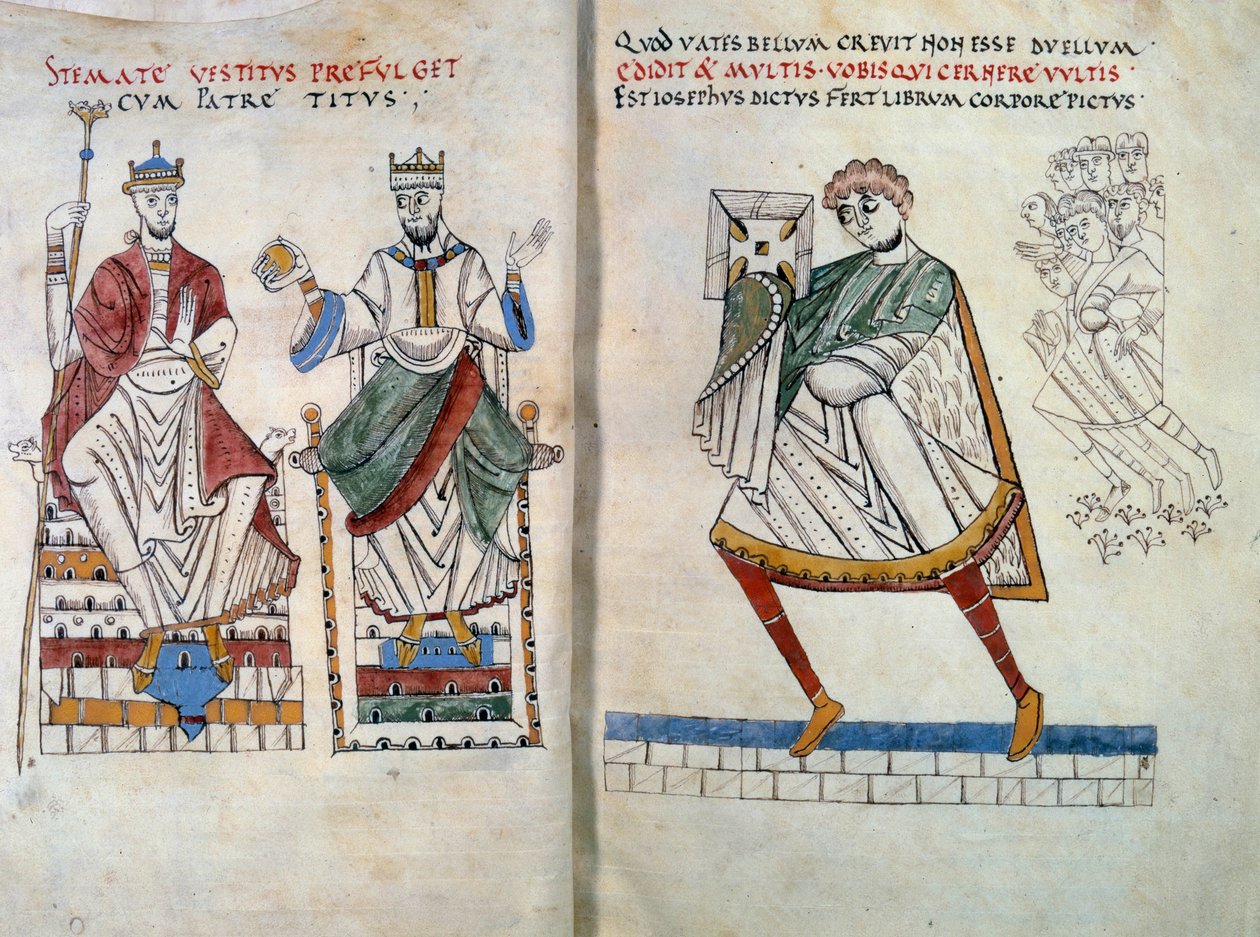 STEMATE VESTITVS PREFVLGET
CVM PATRE TITVS·,·
QVOD VATES BELLVM CREVIT NON ESSE DVELLVM·
EDIDIT & MVLTIS·VOBIS QVI CERNERE VVLTIS·
EST IOSEPHVS DICTVS FERT LIBRVM CORPORE PICTVS·